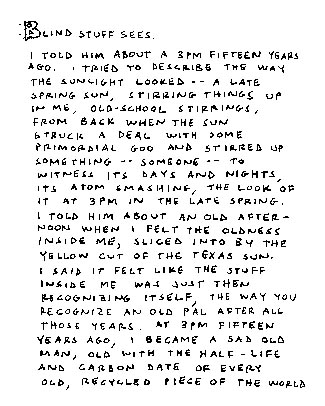 BLIND STUFF SEES.
I TOLD HIM ABOUT A 3PM FIFTEEN YEARS
AGO. I TRIED TO DESCRIBE THE WAY
THE SUNLIGHT LOOKED -- A LATE
SPRING SUN, STIRRING THINGS UP
IN ME, OLD-SCHOOL STIRRINGS,
FROM BACK WHEN THE SUN
STRUCK A DEAL WITH SOME
PRIMORDIAL GOO AND STIRRED UP
SOMETHING -- SOMEONE -- TO
WITNESS ITS DAYS AND NIGHTS,
ITS ATOM SMASHING, THE LOOK OF
IT AT 3PM IN THE LATE SPRING.
I TOLD HIM ABOUT AN OLD AFTER-
NOON WHEN I FELT THE OLDNESS
INSIDE ME, SLICED INTO BY THE
YELLOW CUT OF THE TEXAS SUN.
I SAID IT FELT LIKE THE STUFF
INSIDE ME WAS JUST THEN
RECOGNIZING ITSELF, THE WAY YOU
RECOGNIZE AN OLD PAL AFTER ALL
THOSE YEARS. AT 3PM FIFTEEN
YEARS AGO, I BECAME A SAD OLD
MAN, OLD WITH THE HALF-LIFE
AND CARBON DATE OF EVERY
OLD, RECYCLED PIECE OF THE WORLD